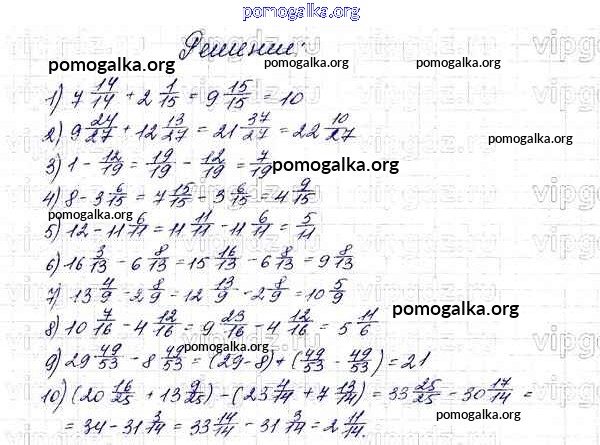 pomogalka.org
Решение:
pomogalka.org pomogalka.org
1) 7 14/14 + 2 1/15 = 9 15/15 = 10
pomogalka.org
2) 9 24/27 + 12 13/27 = 21 37/27 = 22 10/27
pomogalka.org
3) 1 - 12/19 = 19/19 - 12/19 = 7/19
pomogalka.org
4) 8 - 3 6/15 = 7 15/15 - 3 6/15 = 4 9/15
pomogalka.org
5) 12 - 11 6/11 = 11 11/11 - 11 6/11 = 5/11
6) 16 3/13 - 6 8/13 = 15 16/13 - 6 8/13 = 9 8/13
7) 13 4/9 - 2 8/9 = 12 13/9 - 2 8/9 = 10 5/9
pomogalka.org
8) 10 7/16 - 4 12/16 = 9 23/16 - 4 12/16 = 5 11/6
pomogalka.org
9) 29 49/53 - 8 49/53 = (29-8) + (49/53 - 49/53) = 21
10) (20 16/25 + 13 9/25) - (23 4/14 + 7 13/14) = 33 25/25 - 30 17/14 =
pomogalka.org
= 34 - 31 3/14 = 33 14/14 - 31 3/14 = 2 11/14.